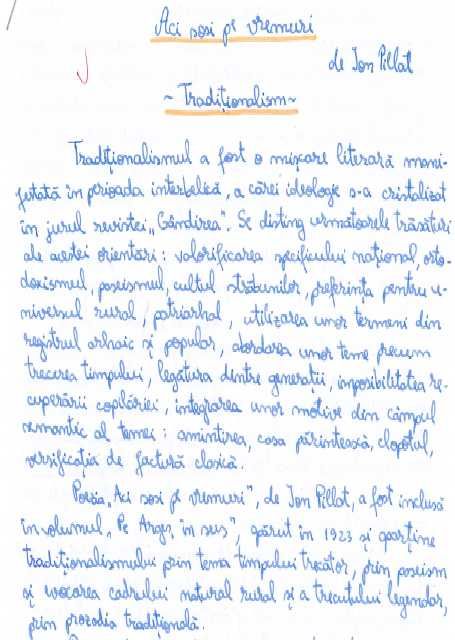 Aci sosi pe vremuri
de Ion Pillat
~ Tradiționalism ~
Tradiționalismul a fost o mișcare literară mani-
festată în perioada interbelică, a cărei ideologie s-a cristalizat
în jurul revistei „Gândirea”. Se disting următoarele trăsături
ale acestei orientări: valorificarea specificului național, orto-
doxismul, paseismul, cultul străbunilor, preferința pentru u-
niversul rural, patriarhal, utilizarea unor termeni din
registrul arhaic și popular, abordarea unor teme precum
trecerea timpului, legătura dintre generații, imposibilitatea re-
cuperării copilăriei, integrarea unor motive din câmpul
semantic al temei: amintirea, casa părintească, clopotul,
versificația de factură clasică.
Poezia „Aci sosi pe vremuri”, de Ion Pillat, a fost inclusă
în volumul „Pe Argeș în sus”, părut în 1923 și aparține
tradiționalismului prin tema timpului trecător, prin paseism
și evocarea cadrului natural rural și a trecutului legendar,
prin prozodia tradițională.